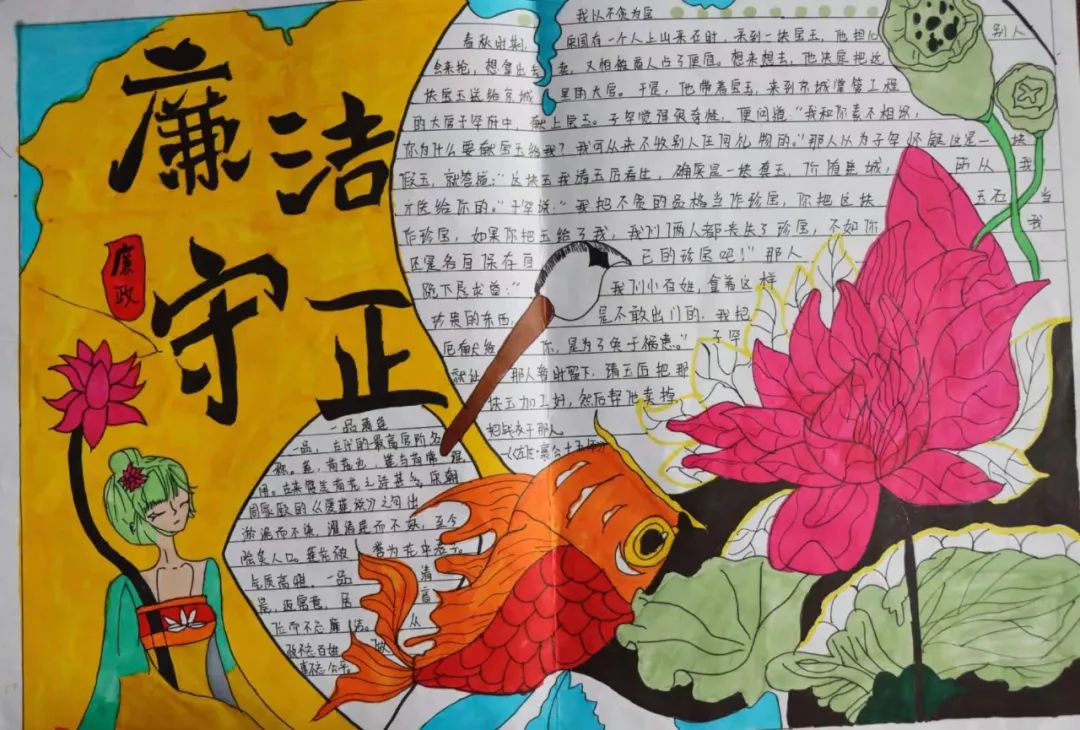 廉洁
守正
廉政
我以不贪为宝
春秋时期, 宋国有一个人上山采石时,来到一块宝玉,他担心 别人
会来抢,想拿出去卖,又怕被商人占了便宜。想来想去,他决定把这
块宝玉送给京城里的大官。于是,他带着宝玉,来到京城掌管工程
的大官子罕府中,献上宝玉。子罕觉得很奇怪,便问道:“我和你素不相识,
你为什么要献宝玉给我?我可从来不收别人任何礼物的。”那人以为子罕怀疑这是一块
假玉,就答道:“这块玉我请玉匠看过,确实是一块真玉,价值连城, 所以我
才送给你的。”子罕说:“我把不贪的品格当作珍宝,你把这块玉石当
作珍宝,如果你把玉给了我,我们两人都丢失了珍宝,不如你 我
还是各自保存自己的珍宝吧!”那人
跪下恳求道:“我们小百姓,拿着这样
珍贵的东西,是不敢出门的,我把
它献给你,是为了免于祸患。”子罕
就让那人暂时留下,请玉匠把那
块玉加工好,然后帮他卖掉,
把钱交于那人
一品清莲
一品,古代的最高官阶名
称。莲,荷花也,莲与荷常混
用。古来赞美荷花之诗甚多。宋朝
周敦颐的《爱莲说》之句出
淤泥而不染,濯清涟而不妖,至今
脍炙人口。莲花被誉为花中君子。
气质高雅。一品清
莲,
位而不忘廉洁。从
政不忘百姓,做
事不忘公平。